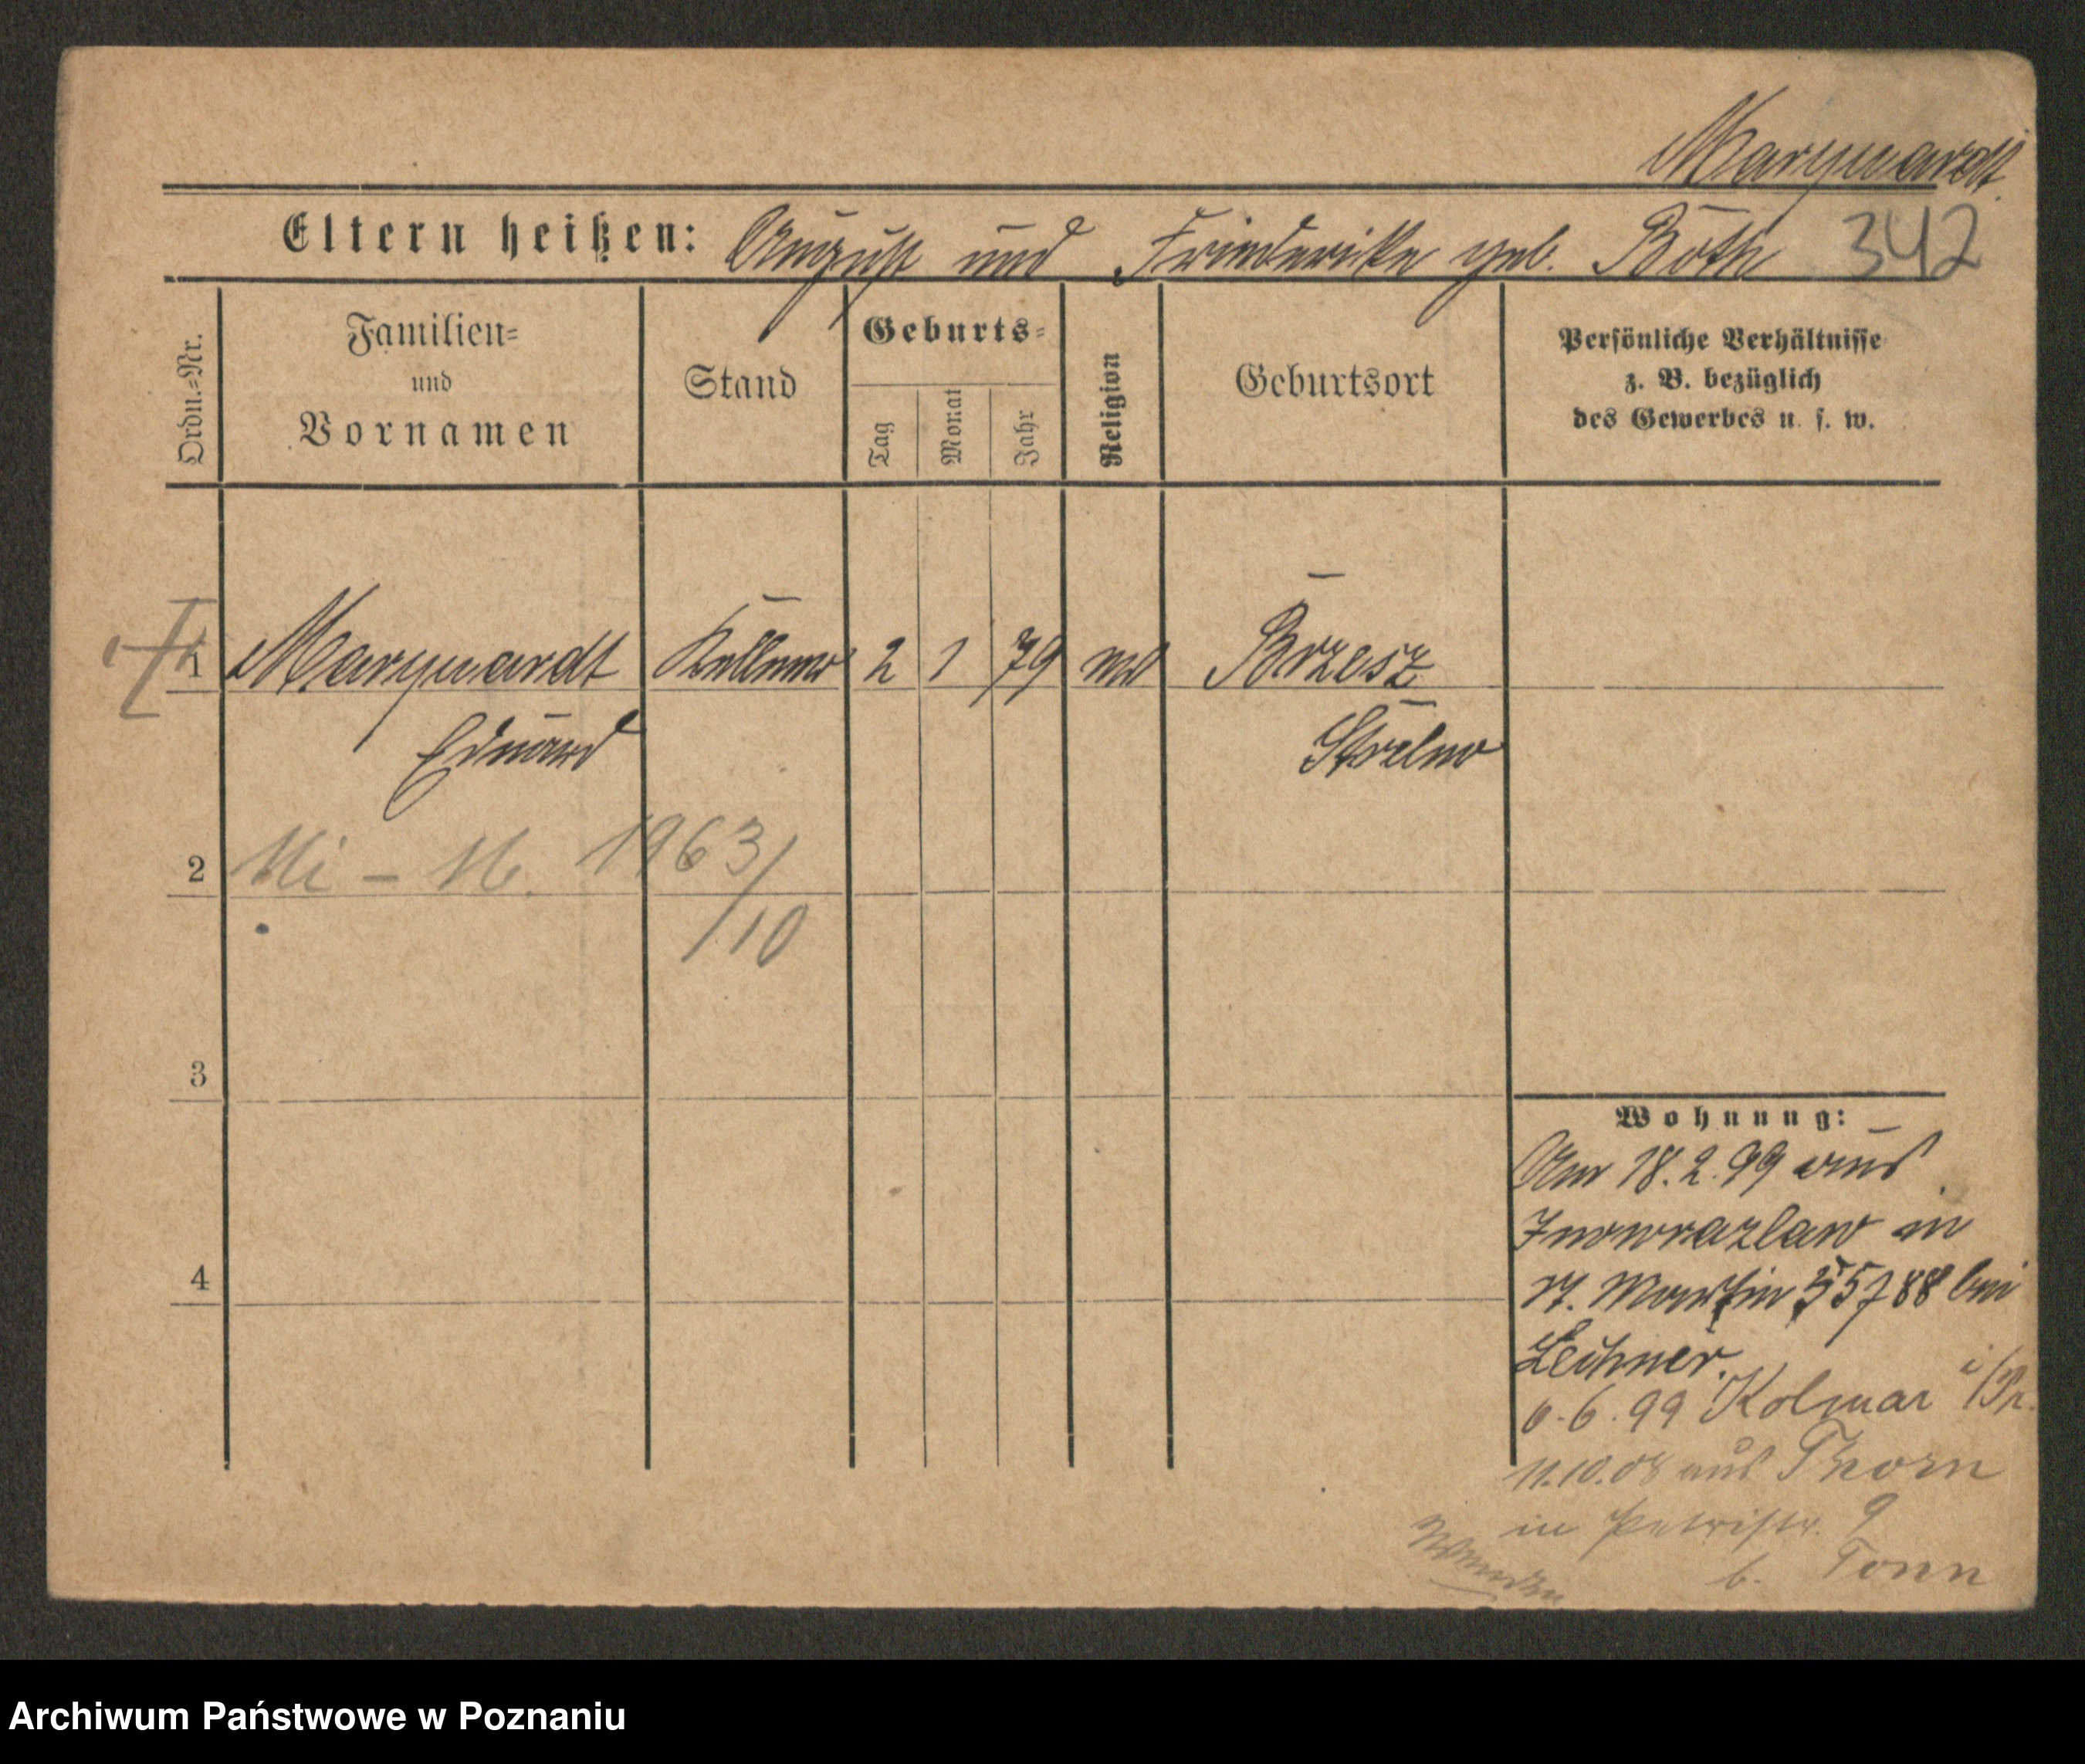 Marquardt
Eltern heißen: August und Friederike geb. Both 342
Ordn.=Nr.
Familien=
und
Vornamen
Stand
Geburts=
Tag
Monat
Jahr
Religion
Geburtsort
Persönliche Verhältnisse
z. B. bezüglich
des Gewerbes u. s. w.
1 Marquardt Kellner 2 1 79 Brzesz
Eduard Strelno
2 Mi – M. 1963/
/10
3
4
Wohnung:
Am 18.2.99 aus
Inowrazlaw in
St. Martin 88 bei
Lechner.
6.6.99 Kolmar i/P.
11.10.08 aus Thorn
in Petristr. 9
b. Tonn
Wenden
Archiwum Państwowe w Poznaniu